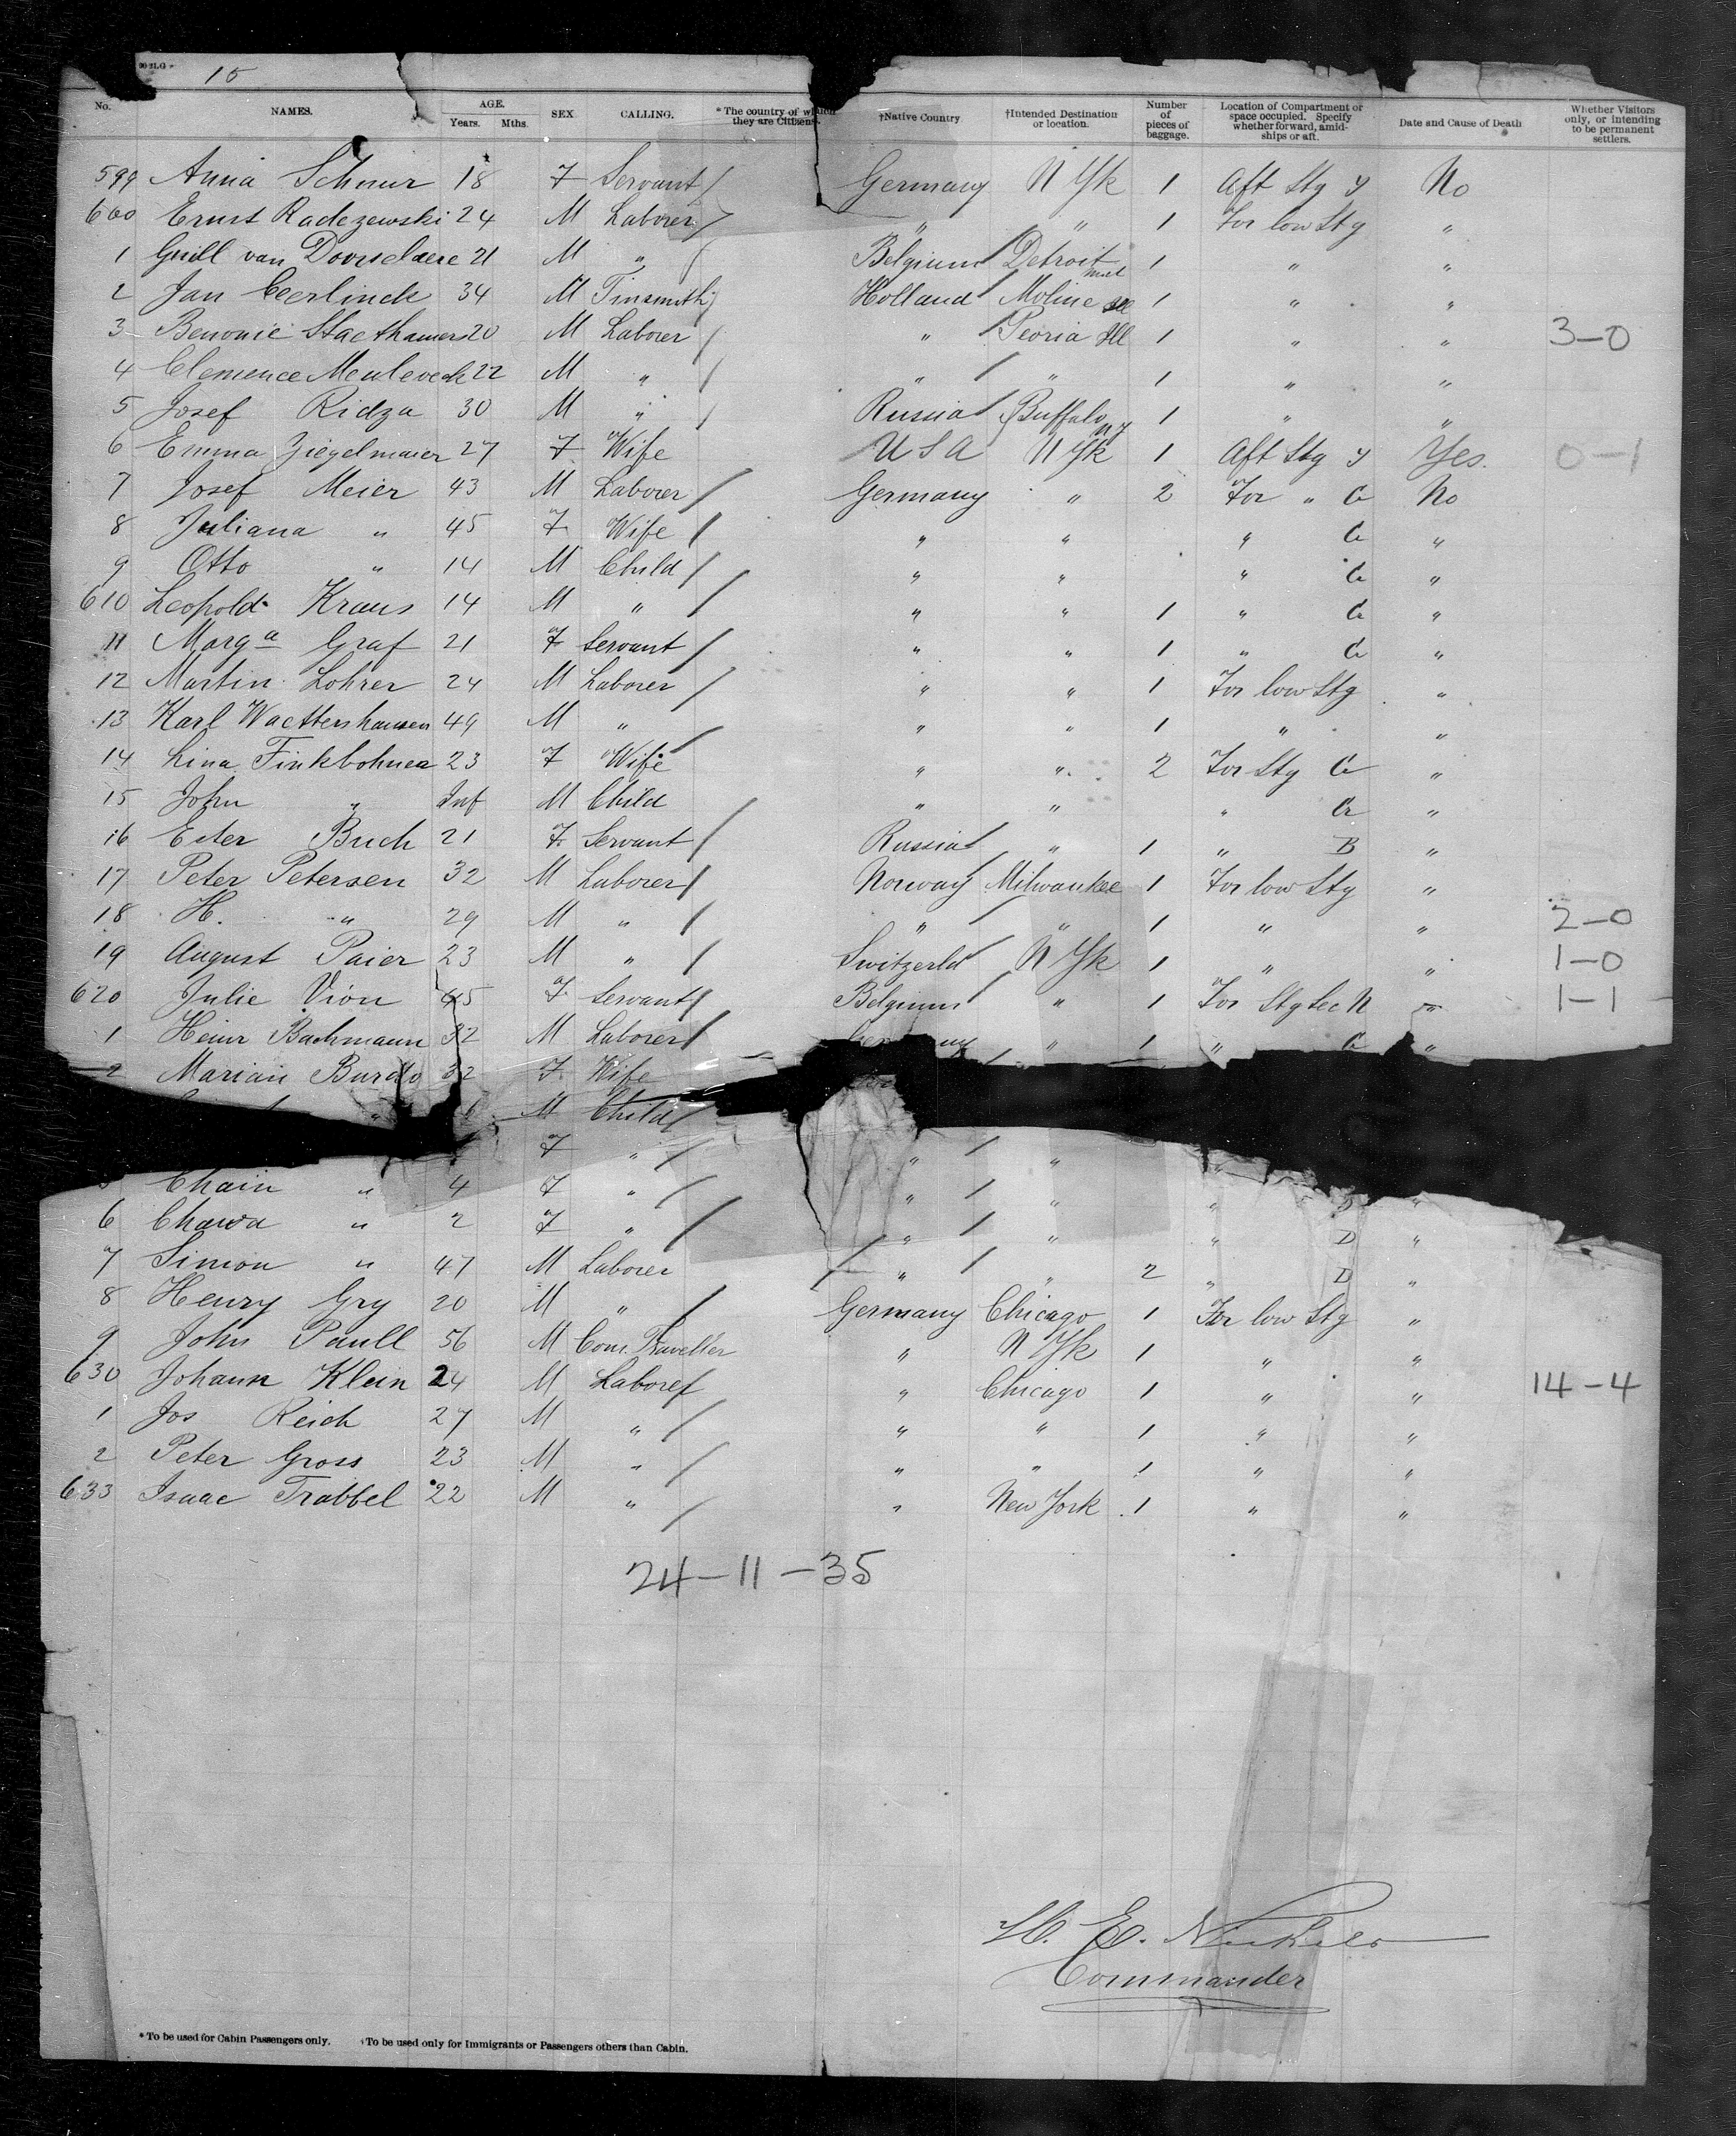 90 2LG
15
No. NAMES. AGE. Years. Mths. SEX CALLING. * The country of which they are Citizens. †Native Country †Intended Destination or location. Number of pieces of baggage. Location of Compartment or space occupied. Specify whether forward, amidships or aft. Date and Cause of Death Whether Visitors only, or intending to be permanent settlers.
599 Anna Schnur 18 F Servant / Germany N Yk 1 Aft Stg y No
600 Ernst Radezewski 24 M Laborer / " " 1 For low Stg "
1 Guill van Doorselaere 21 M " / Belgium Detroit 1 " "
2 Jan Ceerlinck 34 M Tinsmith / Holland Moline Ill 1 " "
3 Benonie Staethamers 20 M Laborer / " Peoria Ill 1 " " 3-0
4 Clemence Meuleveck 22 M " / " " 1 " "
5 Josef Ridza 30 M " / Russia Buffalo NY 1 " "
6 Emma Ziegelmaier 27 F Wife U S A N Yk 1 Aft Stg y Yes. 0-1
7 Josef Meier 43 M Laborer / Germany " 2 For " G No
8 Juliana " 45 F Wife / " " " G "
9 Otto " 14 M Child / " " " G "
610 Leopold Kraus 14 M " / " " 1 " G "
11 Marga Graf 21 F Servant / " " 1 " G "
12 Martin Lohrer 24 M Laborer / " " 1 For low Stg "
13 Karl Waettershausen 49 M " / " " 1 " "
14 Lina Finkbohner 23 F Wife " " 2 For Stg G "
15 John " Inf M Child " " " G "
16 Ester Buch 21 F Servant / Russia " 1 " B "
17 Peter Petersen 32 M Laborer / Norway Milwaukee 1 For low Stg "
18 H. " 29 M " / " " 1 " " 2-0
19 August Paier 23 M " / Switzerld N Yk 1 " " 1-0
620 Julie Vion 45 F Servant / Belgium " 1 For Stg Sec N " 1-1
1 Heinr Bachmann 32 M Laborer / Germany " 1 " G "
2 Marian Burdo 32 F Wife
" M Child /
F " / " " "
Chain " 4 F " / " " " D "
6 Chawa " 2 F " / " " " D "
7 Simon " 47 M Laborer / " " 2 " D "
8 Henry Gry 20 M " / Germany Chicago 1 For low Stg "
9 John Paull 56 M Com. Traveller " N Yk 1 " "
630 Johann Klein 24 M Laborer / " Chicago 1 " " 14-4
1 Jos Reich 27 M " / " " 1 " "
2 Peter Gross 23 M " / " " 1 " "
633 Isaac Trabbel 22 M " / " New York 1 " "
24-11-35
Commander
* To be used for Cabin Passengers only. †To be used only for Immigrants or Passengers others than Cabin.